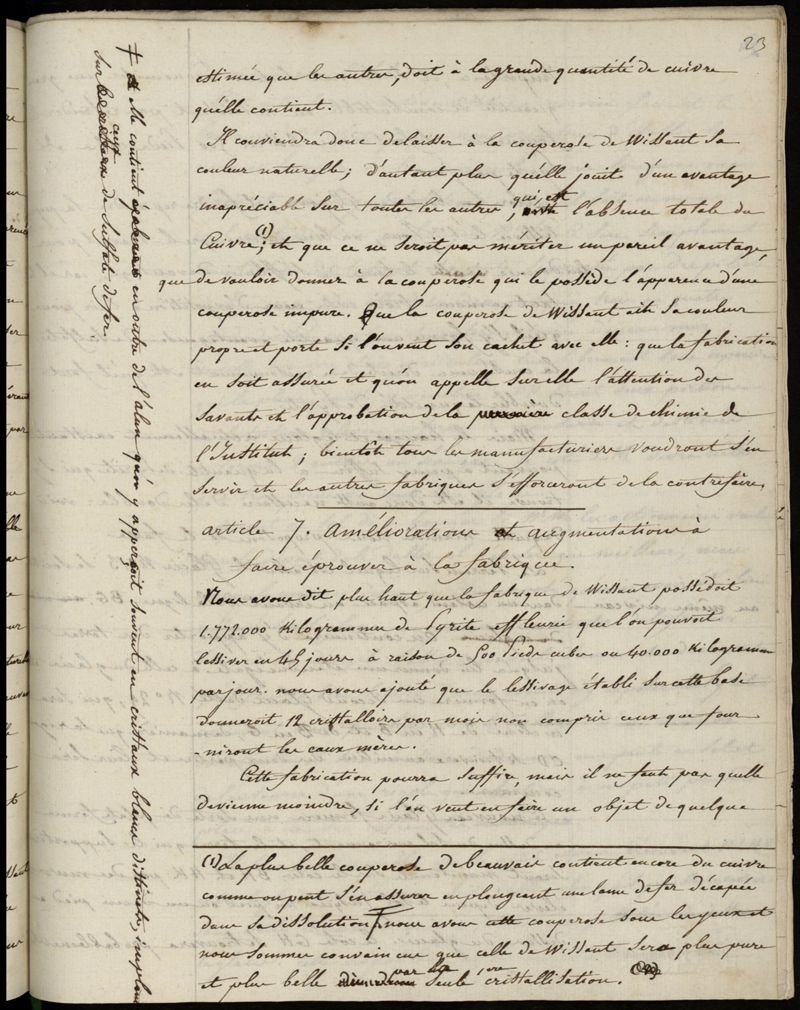 23
estimée que les autres, doit à la grande quantité de cuivre
qu'elle contient.
Il conviendra donc de laisser à la couperose de Wissant sa
couleur naturelle; d'autant plus qu'elle jouit d'un avantage
inapréciable sur toutes les autres, qui est l'absence totale du
Cuivre (1); et que ce ne seroit pas mériter un pareil avantage,
que de vouloir donner à la couperose qui le possède l'apparence d'une
couperose impure. Que la couperose de Wissant ait sa couleur
propre et porte si l'on veut son cachet avec elle: que la fabrication
en soit assurée et qu'on appelle sur elle l'attention des
Savants et l'approbation de la classe de chimie de
l'Institut; bientôt tous les manufacturiers voudront s'en
servir et les autres fabriques s'efforceront de la contrefaire.
article 7. améliorations et augmentations à
faire éprouver à la fabrique.
Nous avons dit plus haut que la fabrique de Wissant possédoit
1.772.000 Kilogrammes de Pyrite effleurie que l'on pouvoit
lessiver en 45 jours à raison de 500 Pieds cubes ou 40.000 Kilogrammes
par jour. nous avons ajouté que le lessivage établi sur cette base
donneroit 12 cristalloirs par mois non compris ceux que four
-niront les eaux mères.
Cette fabrication pourra suffire, mais il ne faut pas qu'elle
devienne moindre, si l'on veut en faire un objet de quelque
(1) La plus belle couperose de beauvais contient encore du cuivre
comme on peut s'en assurer en plongeant une lame de fer décapée
dans sa dissolution ‡ nous avons cette couperose sous les yeux et
nous sommes convaincus que celle de Wissant sera plus pure
et plus belle par la seule 1ere cristallisation.
‡ Elle contient en outre de l'alun qu'on y apperçoit souvent en cristaux blancs distincts, implantés
sur ceux de sulfate de fer.